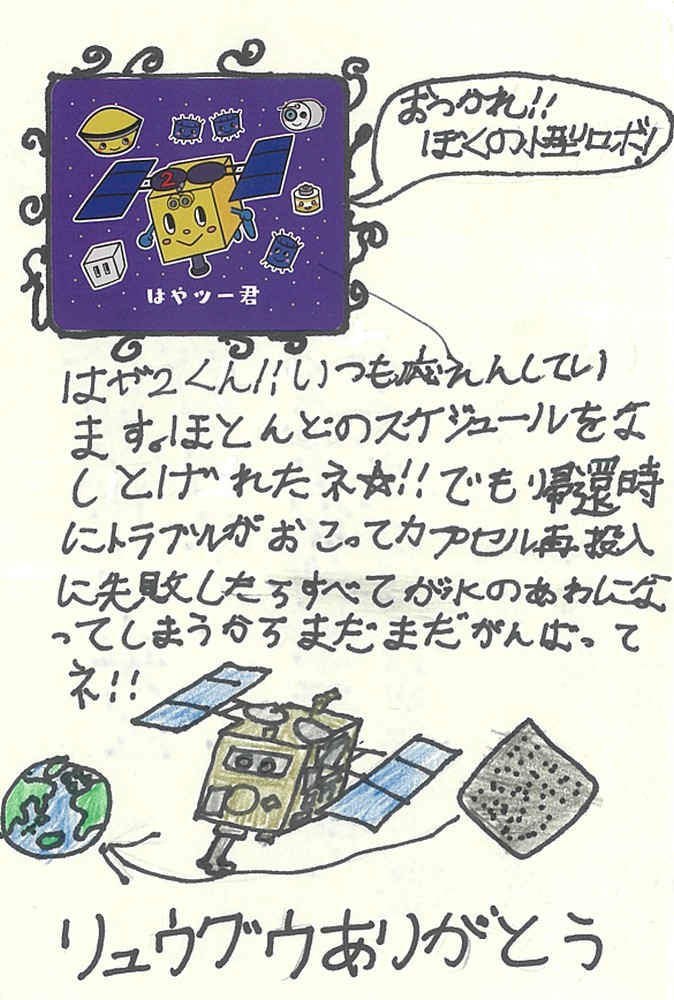 おつかれ!!
ぼくの小型ロボ!
2
はやツー君
はや2くん!!いつも応えんしてい
ます。ほとんどのスケジュールをな
しとげれたネ☆!!でもり帰還時
にトラブルがおこってカプセル再投入
に失敗したらすべてが水のあわにな
ってしまうからまだまだがんばって
ネ!!
リュウグウありがとう